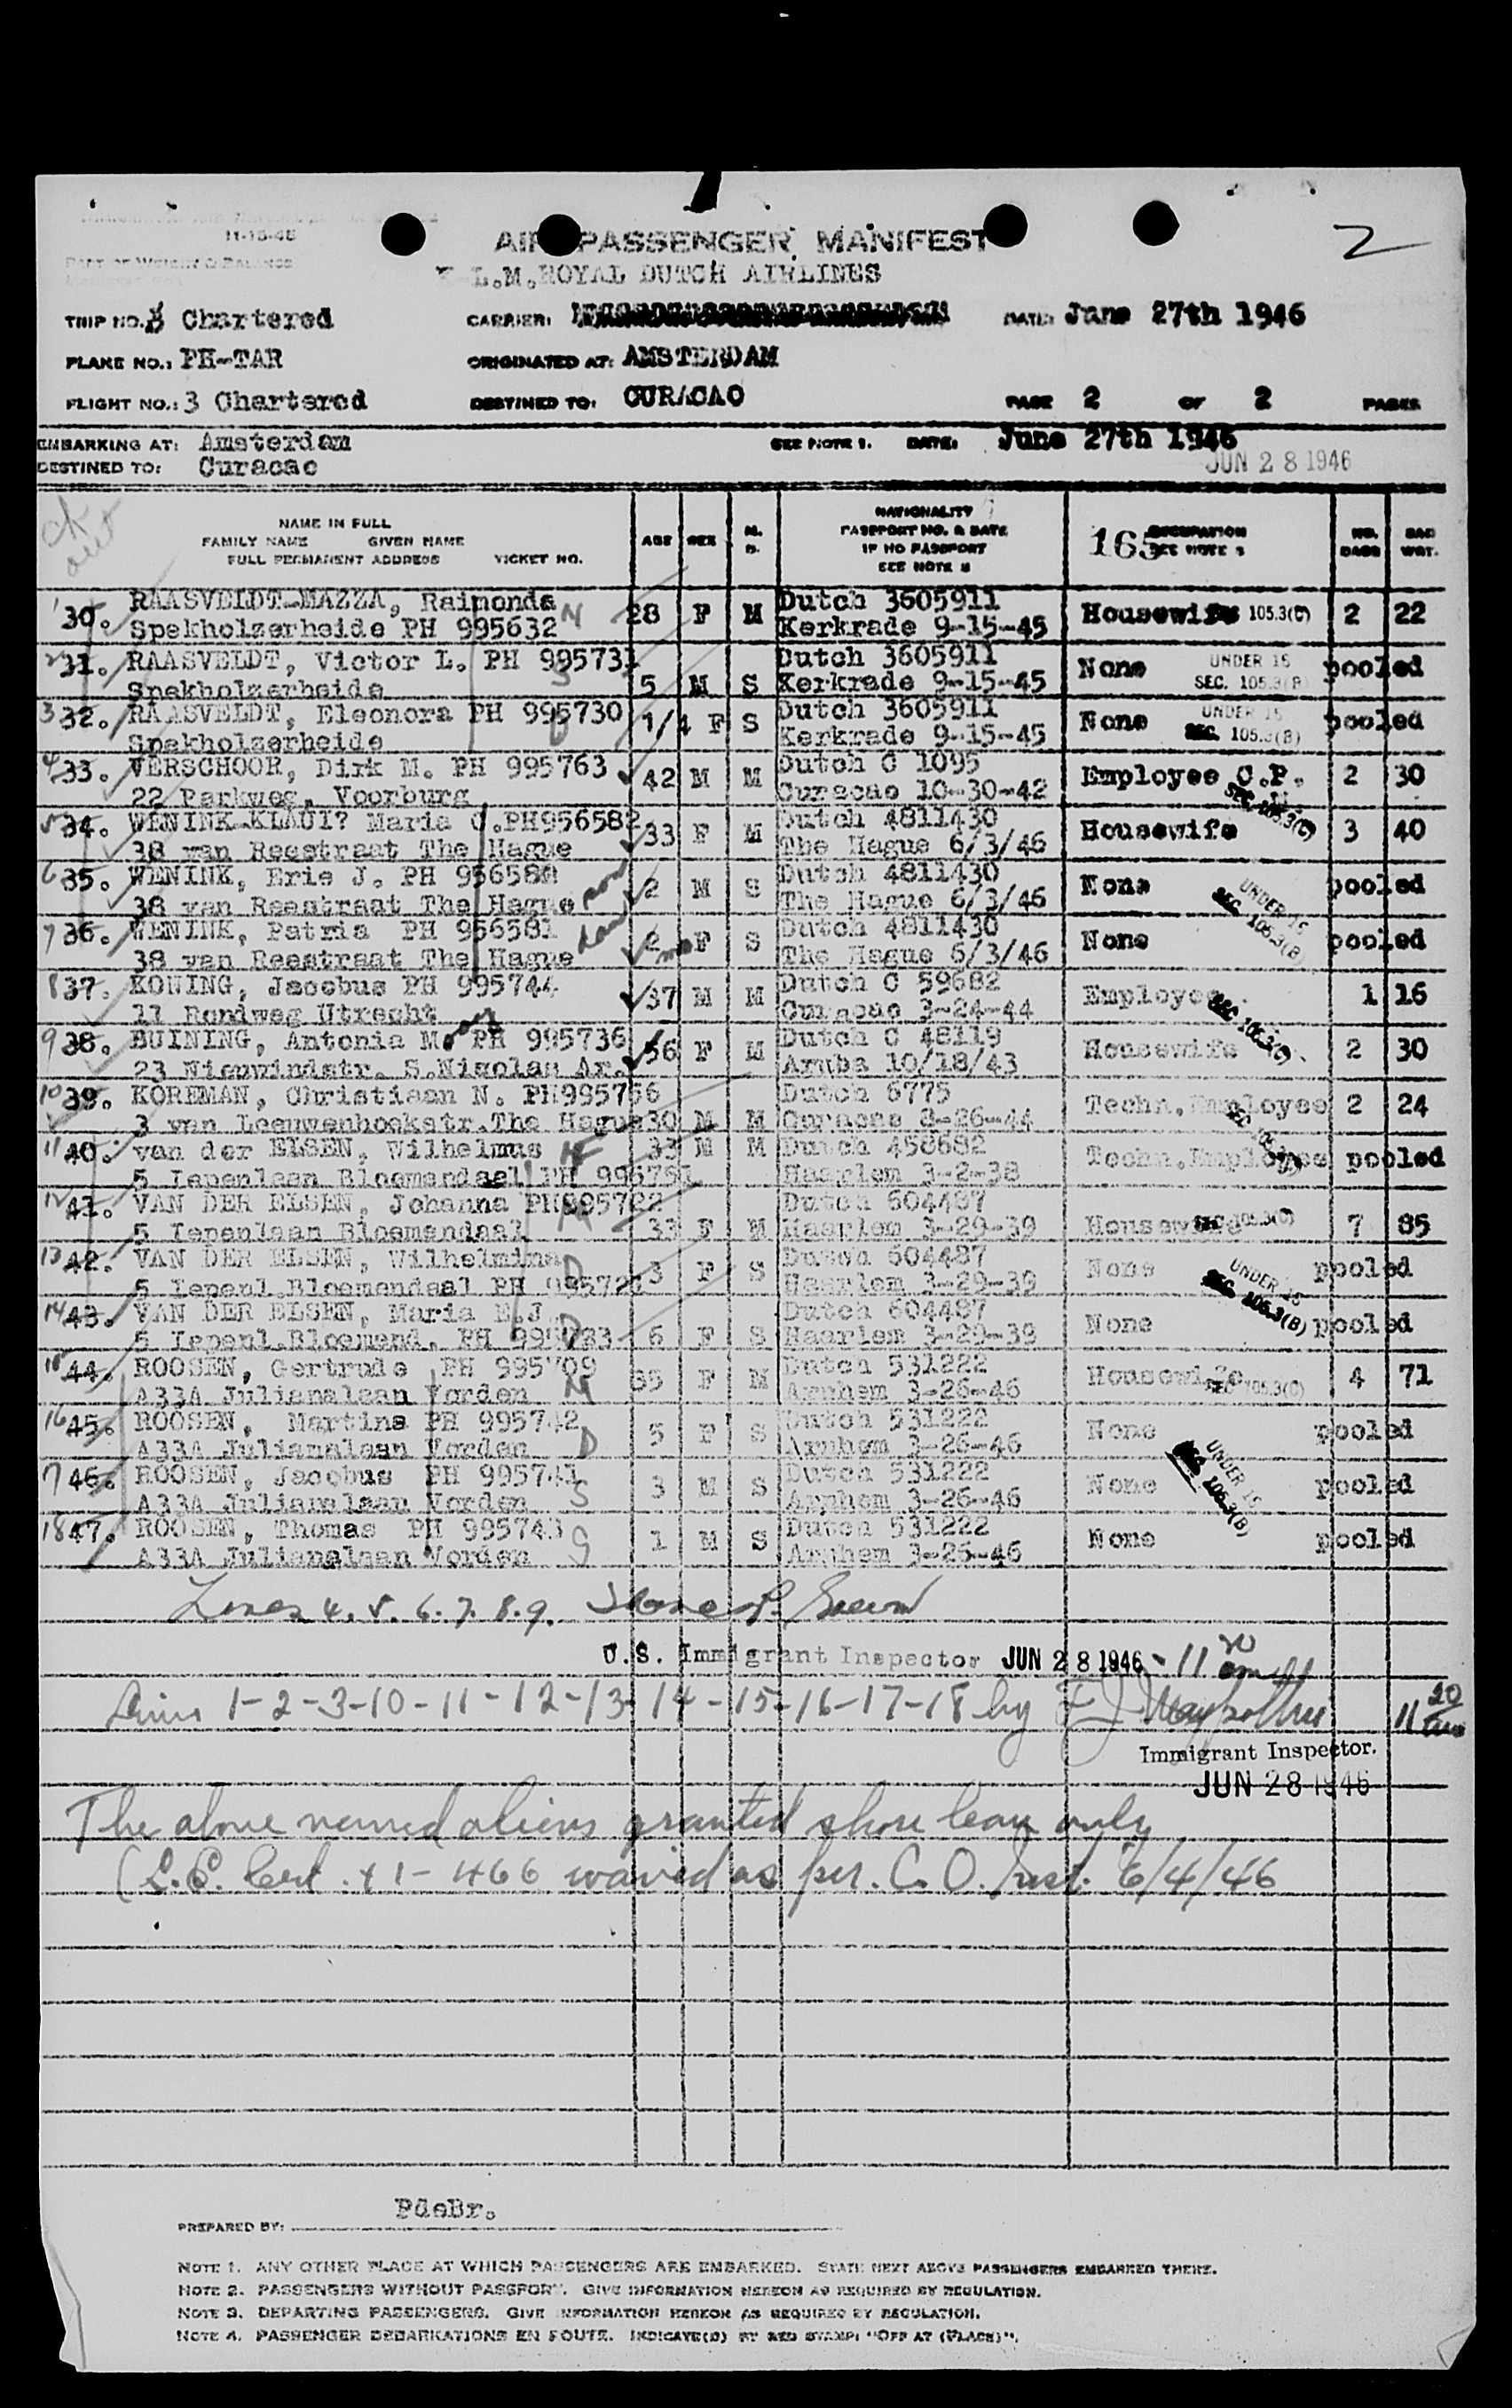 2
11-15-45
AIR PASSENGER MANIFEST
K.L.M. ROYAL DUTCH AIRLINES
TRIP NO. 3 Chartered CARRIER: DATE: June 27th 1946
PLANE NO.: PH-TAR ORIGINATED AT: AMSTERDAM
FLIGHT NO.: 3 Chartered DESTINED TO: CURACAO PAGE 2 OF 2 PAGES
EMBARKING AT: Amsterdam SEE NOTE 1. DATE: June 27th 1946
DESTINED TO: Curacao JUN 28 1946
NAME IN FULL
FAMILY NAME GIVEN NAME
FULL PERMANENT ADDRESS TICKET NO. AGE SEX M. S. NATIONALITY PASSPORT NO. & DATE IF NO PASSPORT SEE NOTE 2 165 OCCUPATION SEE NOTE 3 NO. BAGS BAG WGT.
1 30. RAASVELDT-MAZZA, Raimonda M 28 F M Dutch 3605911 Housewife 105.3(C) 2 22
Spekholzerheide PH 995632 Kerkrade 9-15-45
2 31. RAASVELDT, Victor L. PH 995731 S 5 M S Dutch 3605911 None UNDER 15 SEC. 105.3(B) pooled
Spekholzerheide Kerkrade 9-15-45
3 32. RAASVELDT, Eleonora PH 995730 D 1/4 F S Dutch 3605911 None UNDER 15 SEC. 105.3(B) pooled
Spekholzerheide Kerkrade 9-15-45
4 33. VERSCHOOR, Dirk M. PH 995763 42 M M Dutch C 1095 Employee C.P.I. 2 30
22 Parkweg, Voorburg Curacao 10-30-42
5 34. WENINK-KLAUI? Maria C. PH956582 33 F M Dutch 4811430 Housewife SEC. 105.3(C) 3 40
38 van Reestraat The Hague The Hague 6/3/46
6 35. WENINK, Eric J. PH 956580 son 2 M S Dutch 4811430 None UNDER 15 SEC. 105.3(B) pooled
38 van Reestraat The Hague The Hague 6/3/46
7 36. WENINK, Patria PH 956581 dau 2 mo F S Dutch 4811430 None pooled
38 van Reestraat The Hague The Hague 6/3/46
8 37. KONING, Jacobus PH 995744 37 M M Dutch C 59682 Employee SEC. 105.3(C) 1 16
11 Rondweg Utrecht Curacao 3-24-44
9 38. BUINING, Antonia M. PH 995736 56 F M Dutch C 48119 Housewife 2 30
23 Nieuwindstr. S.Nicolas Ar. Aruba 10/18/43
10 39. KOREMAN, Christiaan N. PH995756 30 M M Dutch 6775 Techn.Employee 2 24
3 van Leeuwenhoekstr.The Hague Curacao 3-26-44
11 40. van der ELSEN, Wilhelmus 33 M M Dutch 458682 Techn.Employee pooled
5 Iepenlaan Bloemendaal PH 995751 Haarlem 3-2-38
12 41. VAN DER ELSEN, Johanna PH995722 M 33 F M Dutch 604487 Housewife SEC. 105.3(C) 7 85
5 Iepenlaan Bloemendaal Haarlem 3-29-39
13 42. VAN DER ELSEN, Wilhelmina D 3 F S Dutch 604487 None UNDER 15 SEC. 105.3(B) pooled
5 Iepenl.Bloemendaal PH Haarlem 3-29-39
14 43. VAN DER ELSEN, Maria E.J. D 6 F S Dutch 604487 None pooled
5 Iepenl.Bloemend. PH 995723 Haarlem 3-29-39
15 44. ROOSEN, Gertrude PH 995709 M 35 F M Dutch 531222 Housewife SEC 105.3(C) 4 71
A33A Julianalaan Vorden Arnhem 3-26-46
16 45. ROOSEN, Martina PH 995742 D 5 F S Dutch 531222 None pooled
A33A Julianalaan Vorden Arnhem 3-26-46
17 46. ROOSEN, Jacobus PH 995741 S 3 M S Dutch 531222 None UNDER 15 SEC. 105.3(B) pooled
A33A Julianalaan Vorden Arnhem 3-26-46
18 47. ROOSEN, Thomas PH 995743 S 1 M S Dutch 531222 None pooled
A33A Julianalaan Vorden Arnhem 3-26-46
Lines 4. 5. 6. 7. 8. 9.
U.S. Immigrant Inspector JUN 28 1946 - 11 20 am
Lines 1-2-3-10-11-12-13-14-15-16-17-18 by F J 11 20 am
Immigrant Inspector.
JUN 28 1946
The above named aliens granted shore leave only
(L.S. Cert. + I-466 waived as per. C.O. Inst. 6/4/46
PREPARED BY: PdeBr.
NOTE 1. ANY OTHER PLACE AT WHICH PASSENGERS ARE EMBARKED. STATE NEXT ABOVE PASSENGERS EMBARKED THERE.
NOTE 2. PASSENGERS WITHOUT PASSPORT. GIVE INFORMATION HEREON AS REQUIRED BY REGULATION.
NOTE 3. DEPARTING PASSENGERS. GIVE INFORMATION HEREON AS REQUIRED BY REGULATION.
NOTE 4. PASSENGER DEBARKATIONS EN ROUTE. INDICATE(D) BY RED STAMP: "OFF AT (PLACE)".